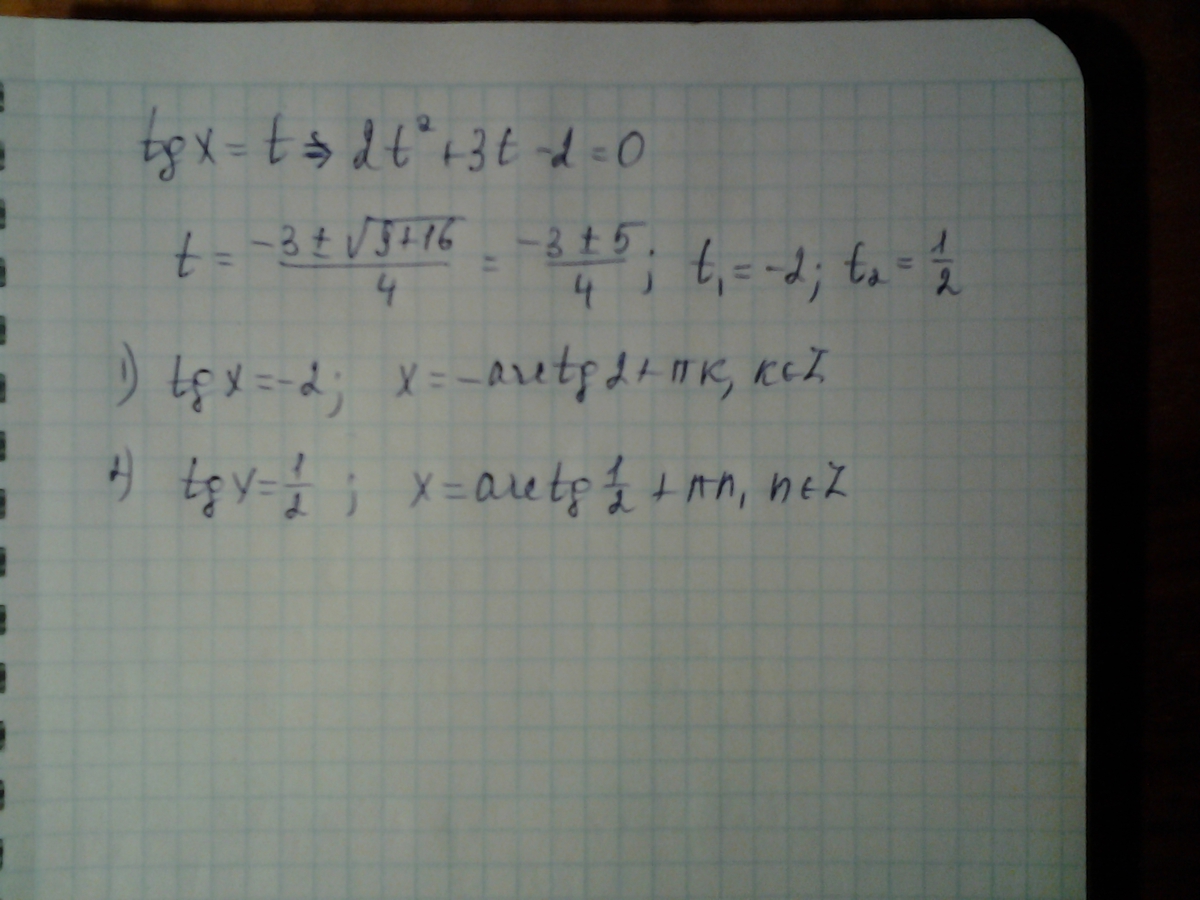 tg x = t ⇒ 2t² + 3t - 2 = 0
t = (-3 ± √(9+16))/4 = (-3 ± 5)/4; t₁ = -2; t₂ = 1/2
1) tg x = -2; x = -arctg 2 + πk, k∈Z
2) tg x = 1/2; x = arctg 1/2 + πn, n∈Z